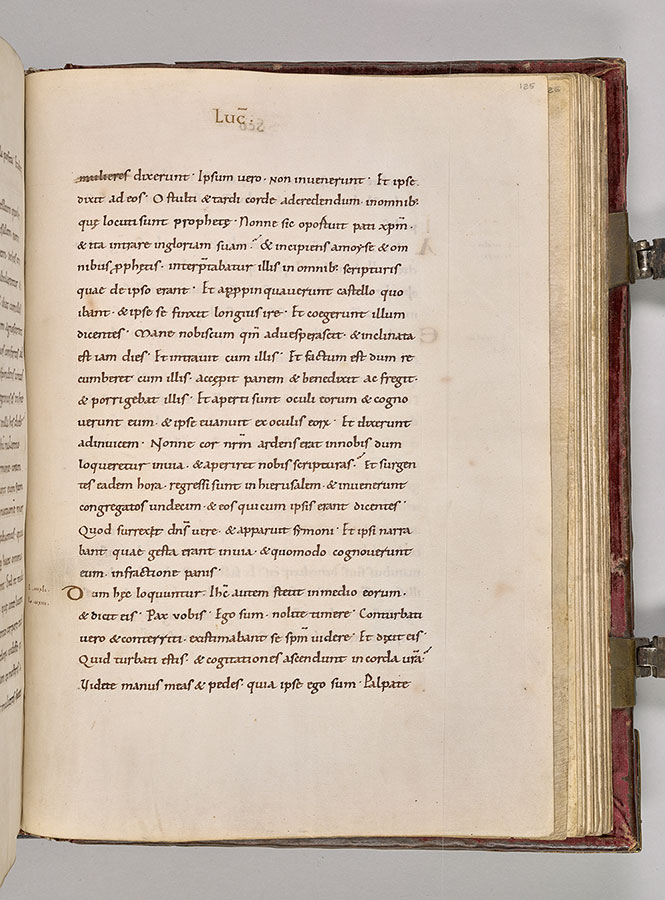 185
LUC̄.
mulieres dixerunt · Ipsum vero · non invenerunt · Et ipse
dixit ad eos · O stulti & tardi corde adcredendum inomnib:
quę locuti sunt prophetę · Nonne sic oportuit pati xp̄m ·
& ita intrare ingloriam suam? & incipiens amoyse & om
nibus pphetis · interp̄tabatur illis in omnib: scripturis
quae de ipso erant · Et appropinquaverunt castello quo
ibant · & ipse se finxit longius ire · Et coegerunt illum
dicentes · Mane nobiscum qm̄ advesperascit · & inclinata
est iam dies · Et intravit cum illis · Et factum est dum re
cumberet cum illis · accępit panem & benedixit ac fregit ·
& porrigebat illis · Et aperti sunt oculi eorum & cogno
verunt eum · & ipse evanuit ex oculis eorꝝ · Et dixerunt
adinvicem · Nonne cor nr̄m ardens erat innobis dum
loqueretur invia · & aperiret nobis scripturas? Et surgen
tes eadem hora · regressi sunt in hierusalem · & invenerunt
congregatos undecim · & eos qui cum ipsis erant dicentes ·
Quod surrexit dn̄s vere · & apparuit simoni · Et ipsi narra
bant quae gesta erant invia · & quomodo cognoverunt
eum · infractione panis ·
Dum hęc loquuntur · Ihc̄ autem stetit inmedio eorum ·
& dicit eis · Pax vobis · Ego sum · nolite timere · Conturbati
vero & conterriti · existimabant se sp̄m videre · Et dixit eis ·
Quid turbati estis · & cogitationes ascendunt in corda vr̄a?
Videte manus meas & pedes · quia ipse ego sum · Palpate